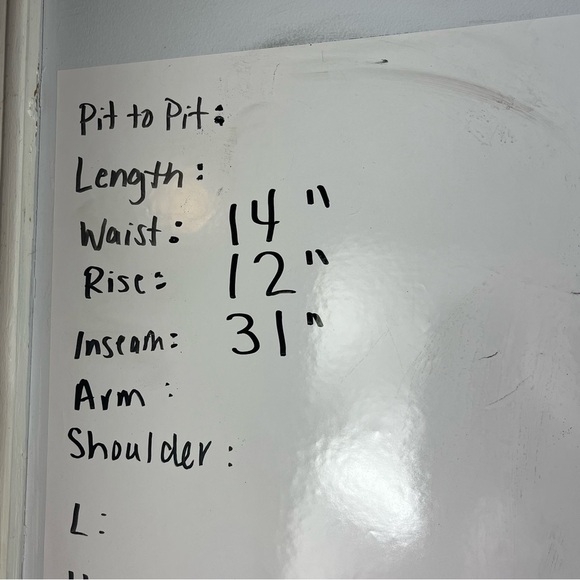 Pit to Pit:
Length:
Waist: 14"
Rise: 12"
Inseam: 31"
Arm:
Shoulder:
L: